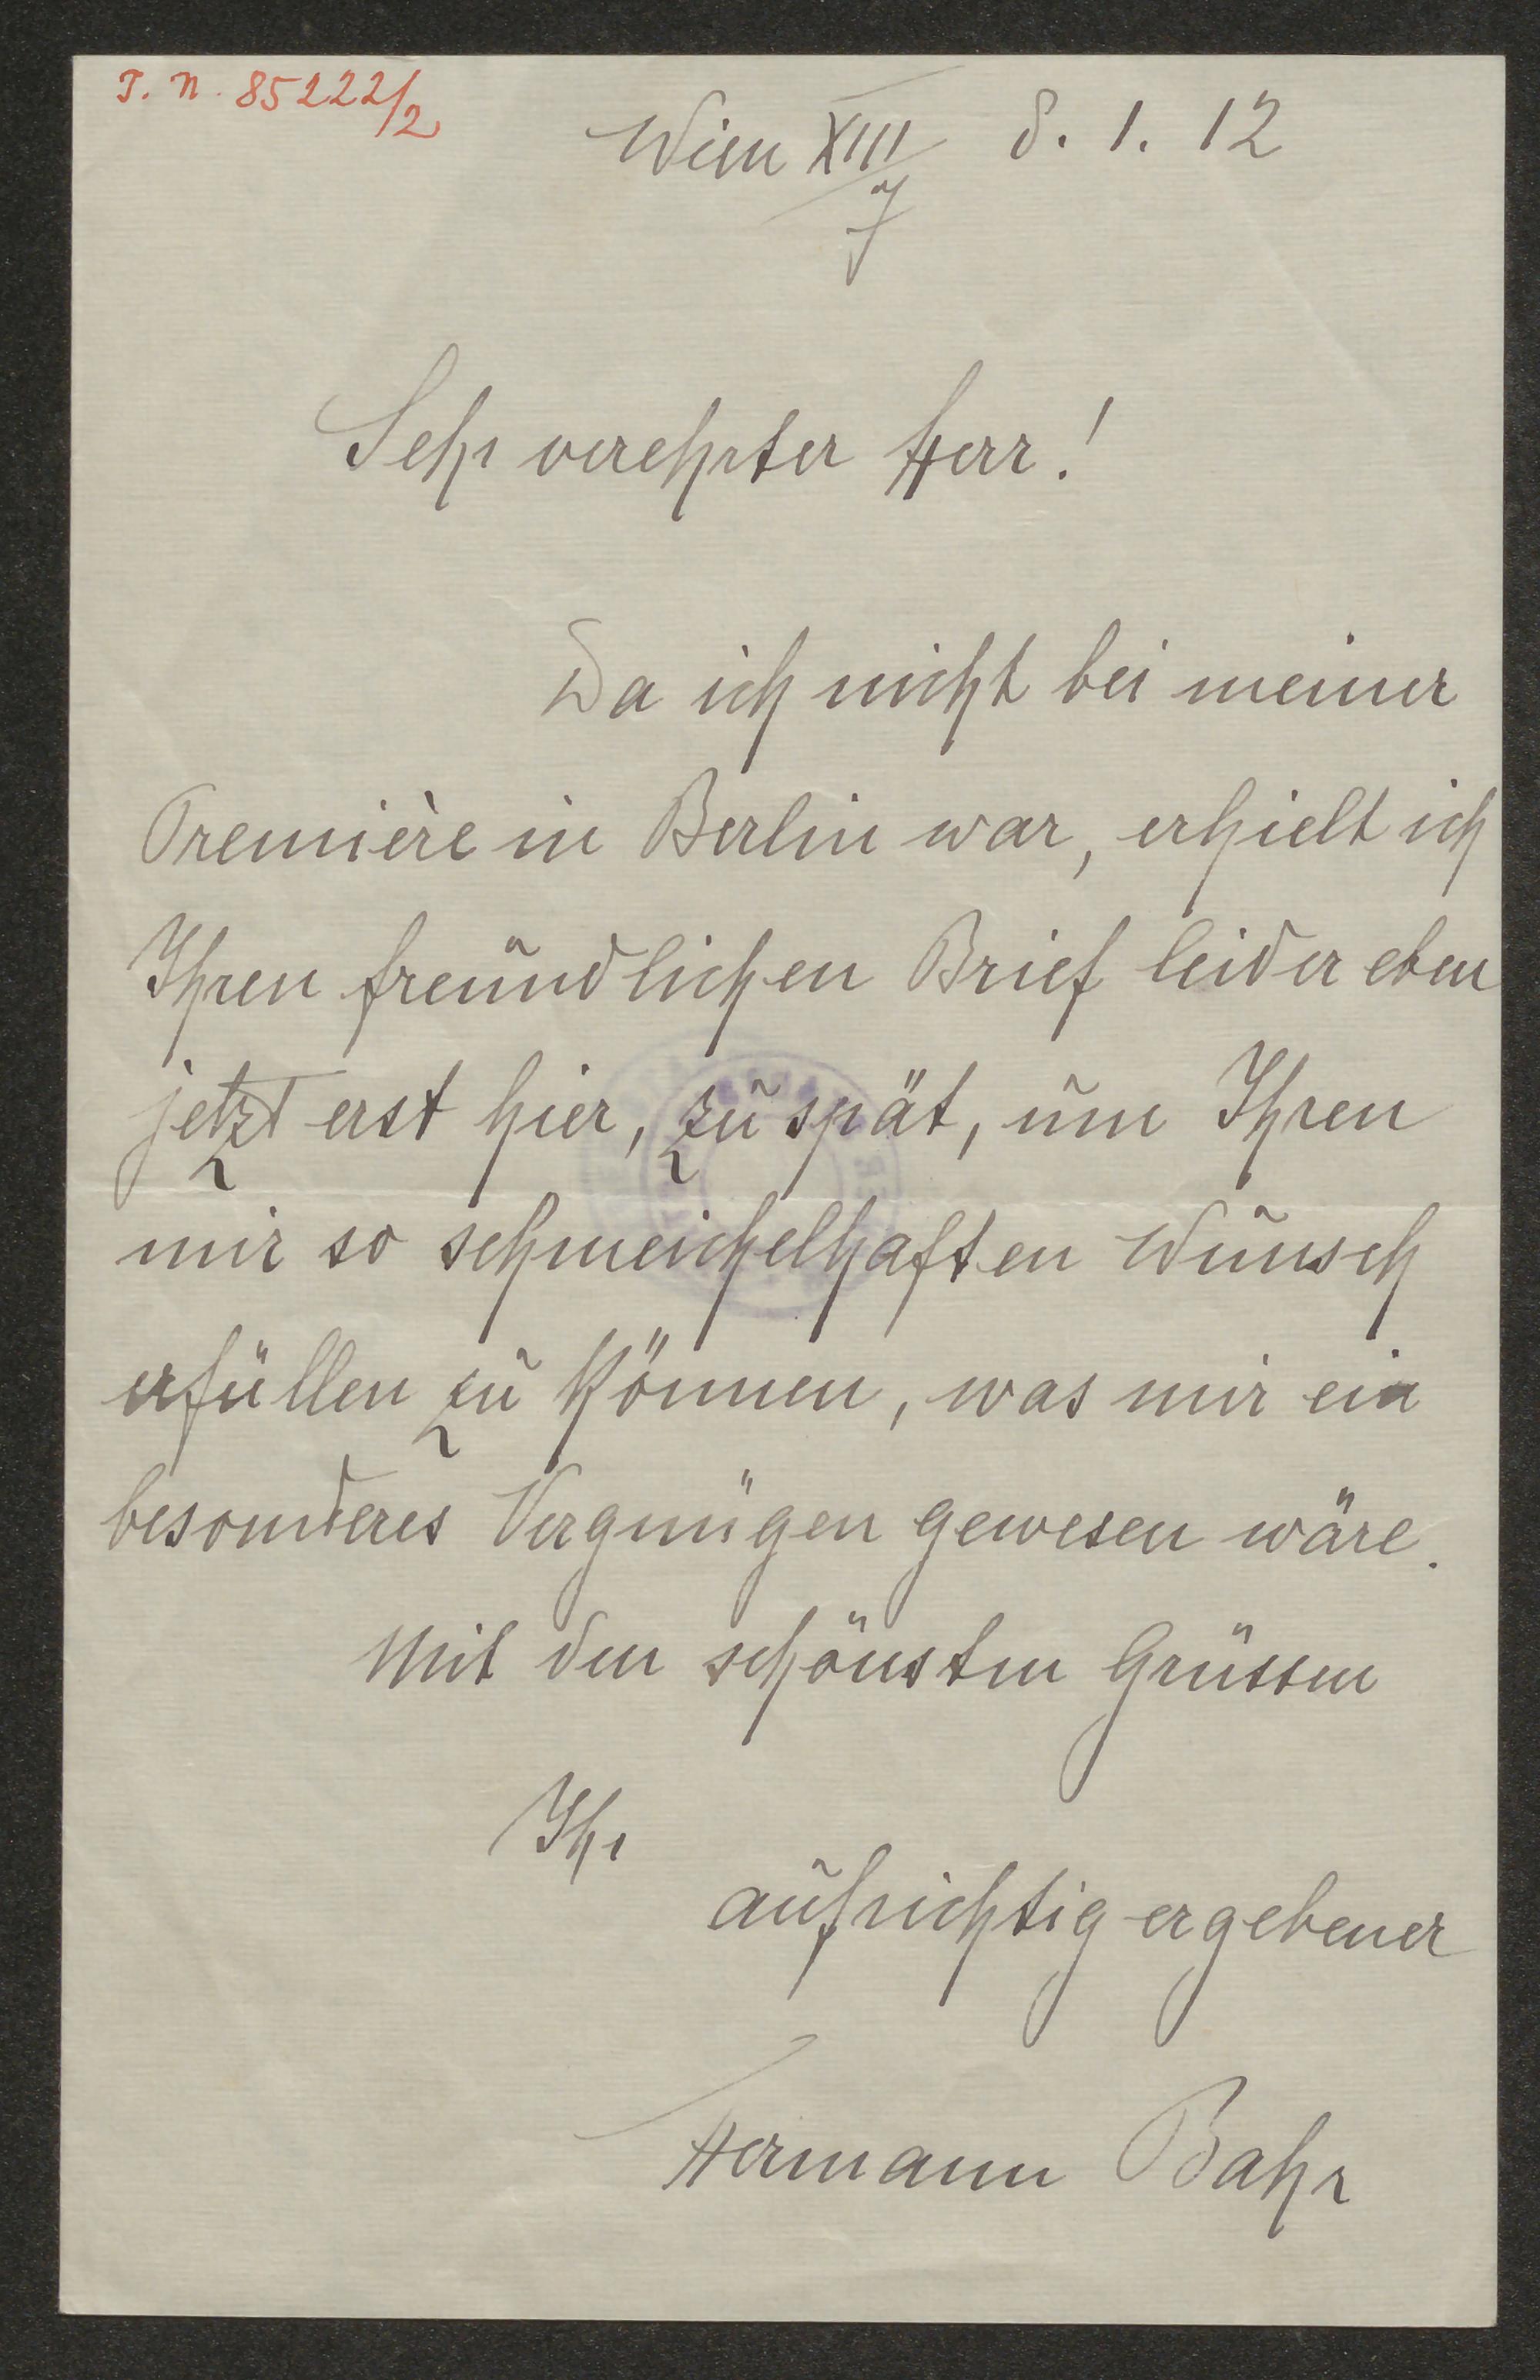 I. N. 85222/2
Wien XIII/7 8. 1. 12
Sehr verehrter Herr!
Da ich nicht bei meiner
Première in Berlin war, erhielt ich
Ihren freundlichen Brief leider eben
jetzt erst hier, zu spät, um Ihren
mir so schmeichelhaften Wunsch
erfüllen zu können, was mir ein
besonderes Vergnügen gewesen wäre.
Mit den schönsten Grüssen
Ihr
aufrichtig ergebener
Hermann Bahr